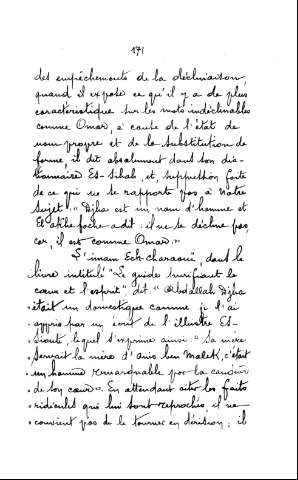 171
des empêchements de la déclinaison,
quand il expose ce qu'il y a de plus
caractéristique sur les mots indéclinables
comme Omar, à cause de l'état de
nom propre et de la substitution de
forme, il dit absolument dans son dic-
tionnaire Es-Sihah, et, suppression faite
de ce qui ne se rapporte pas à notre
sujet: "Djha est un nom d'homme et
El-akhefache a dit: il ne se décline pas,
car, il est comme Omar."
"L'imam Ech-charaoui, dans le
livre intitulé "Le guide purifiant le
cœur et l'esprit" dit: "Abdallah Djha
"était un domestique comme je l'ai
"appris par un écrit de l'illustre Es-
"Siouti, lequel s'exprime ainsi: "Sa mère
"servait la mère d'Anis ben Malek, c'était
"un homme remarquable par la candeur
"de son cœur". En attendant citer les faits
"ridicules qui lui sont reprochés, il ne
"convient pas de le tourner en dérision; il